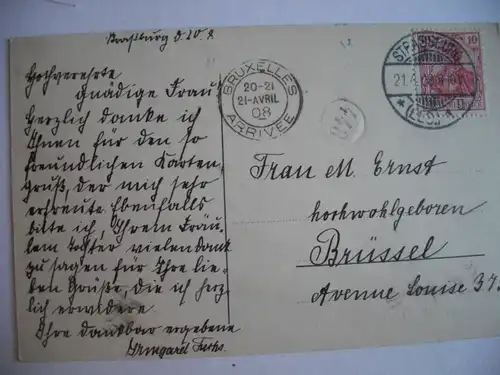 Strassburg d 20. 4.
Hochverehrte
Gnädige Frau
Herzlich danke ich
Ihnen für den so
freundlichen Karten,
gruß, der mich sehr
erfreute. Ebenfalls
bitte ich, Ihrem Fräu,
lein Tochter vielen dank
zu sagen für Ihre lie,
ben Grüße, die ich herz,
lich erwidere
Ihre dankbar ergebene
Irmgard Fuchs.
BRUXELLES
20-21
21-AVRIL
08
ARRIVÉE
STRASSBURG
21.4.08
* (Els.)
10
Frau M. Ernst
hochwohlgeboren
Brüssel
Avenue Louise 37.